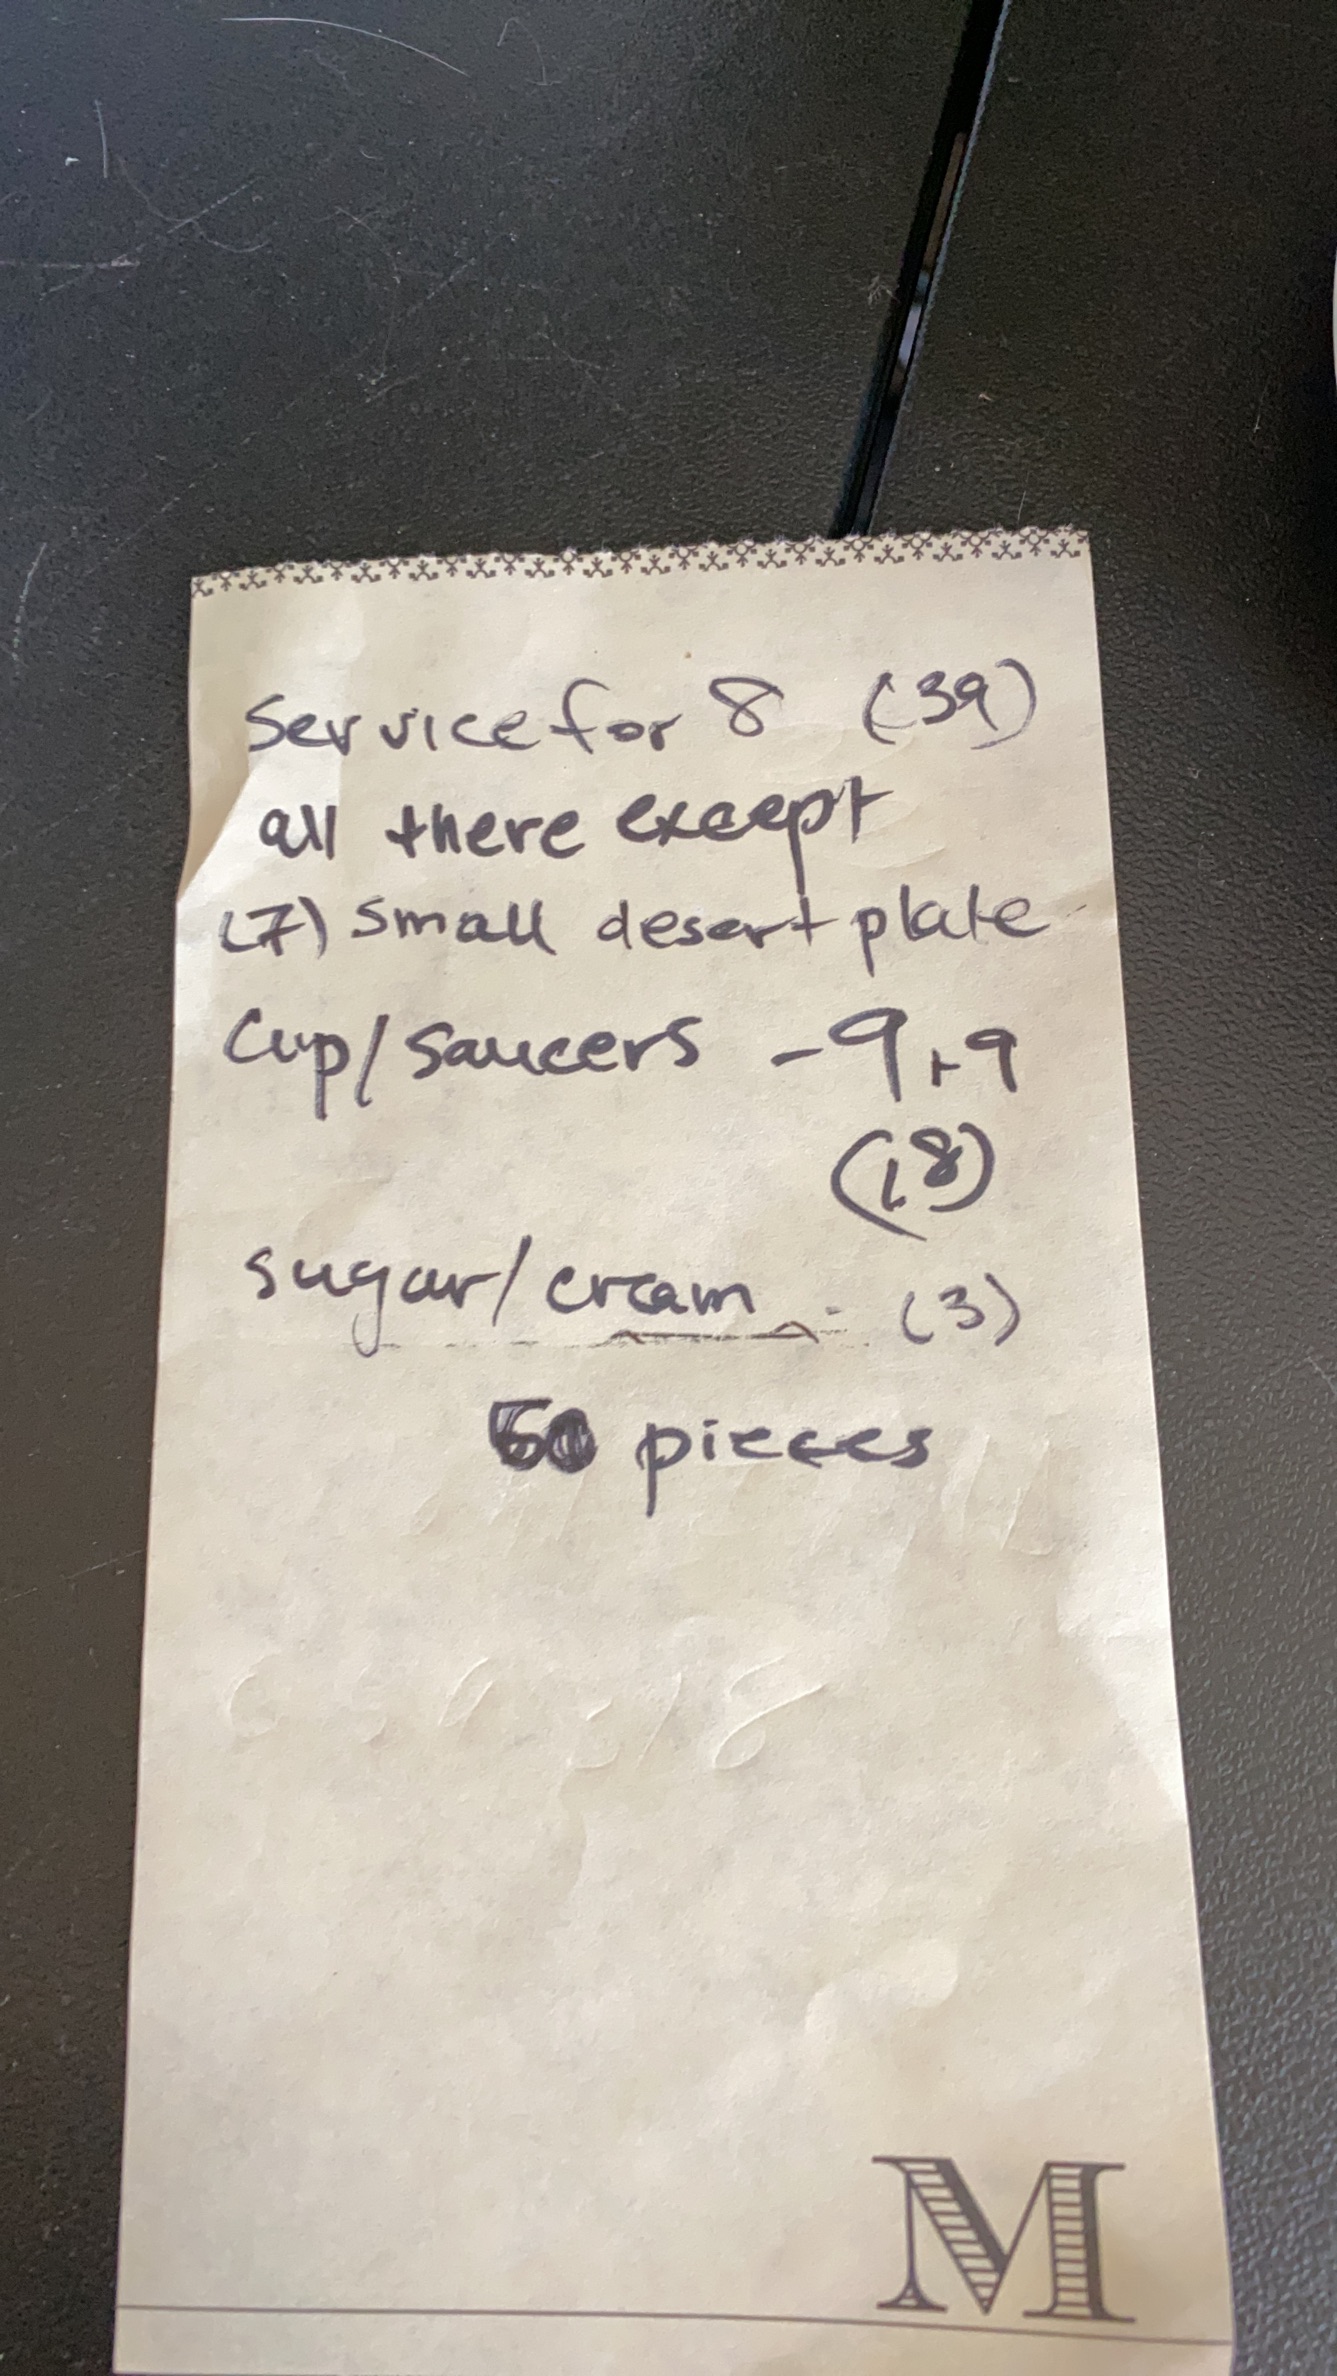 Service for 8 (39)
all there except
(7) small desert plate
Cup/saucers - 9 + 9
(18)
sugar/cream - (3)
pieces
M